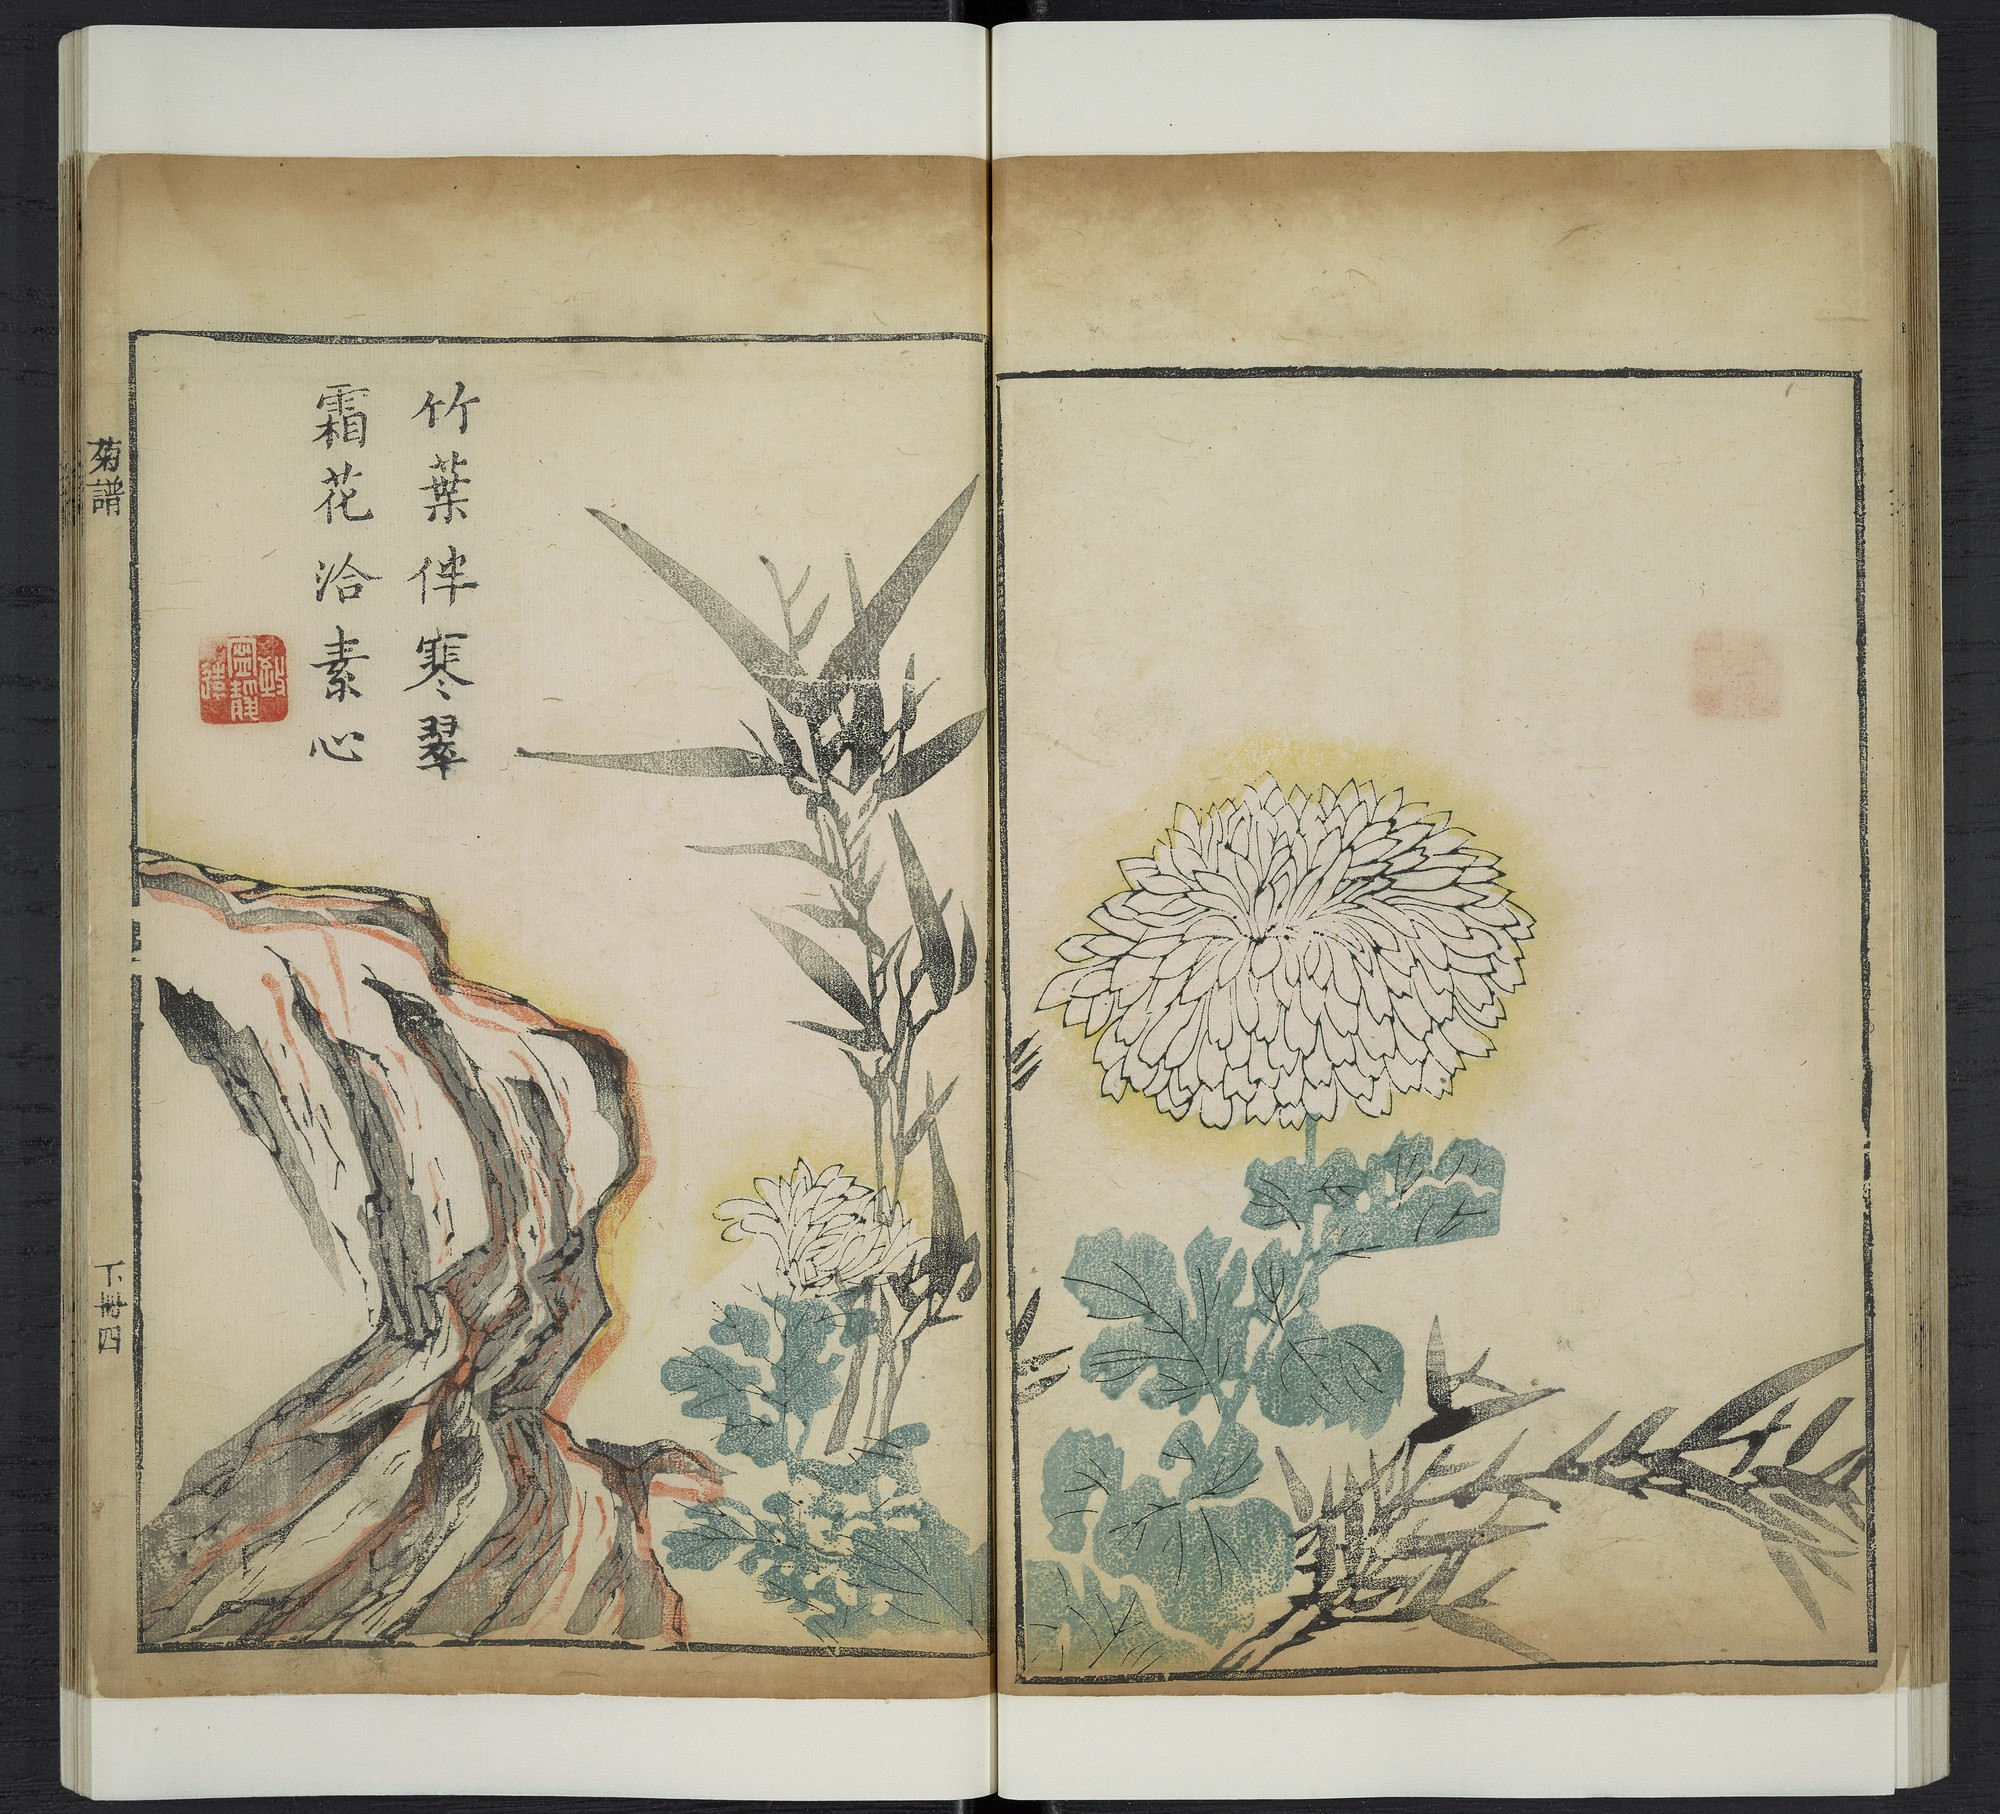 竹葉伴寒翠
霜花洽素心
菊譜
下冊四